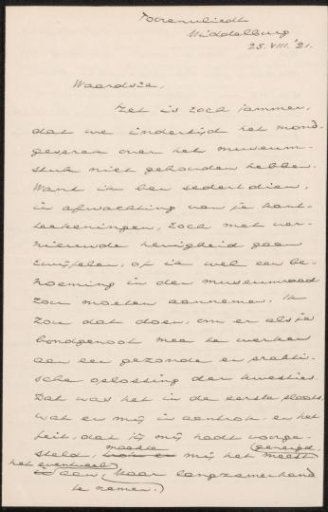 Torenvliedt
Middelburg
25.VIII.'21.
Waardste,
Het is toch jammer,
dat we indertijd het mond-
gesprek over het museum-
stuk niet gehouden hebben.
Want ik ben sedertdien,
in afwachting van je kant-
teekeningen, toch met ver-
nieuwde hevigheid gaan
twijfelen, of ik wel een be-
noeming in den museumraad
zou moeten aannemen. Ik
zou dat doen, om er als je
bondgenoot mee te werken
aan een gezonde en prakti-
sche oplossing der kwesties.
Dat was het in de eerste plaats,
wat er mij in aantrok. en het
feit, dat jij mij hadt voorge-
steld, maakte mij het meest (geneigd
het eventueel aan (maar langzamerhand
te nemen.)